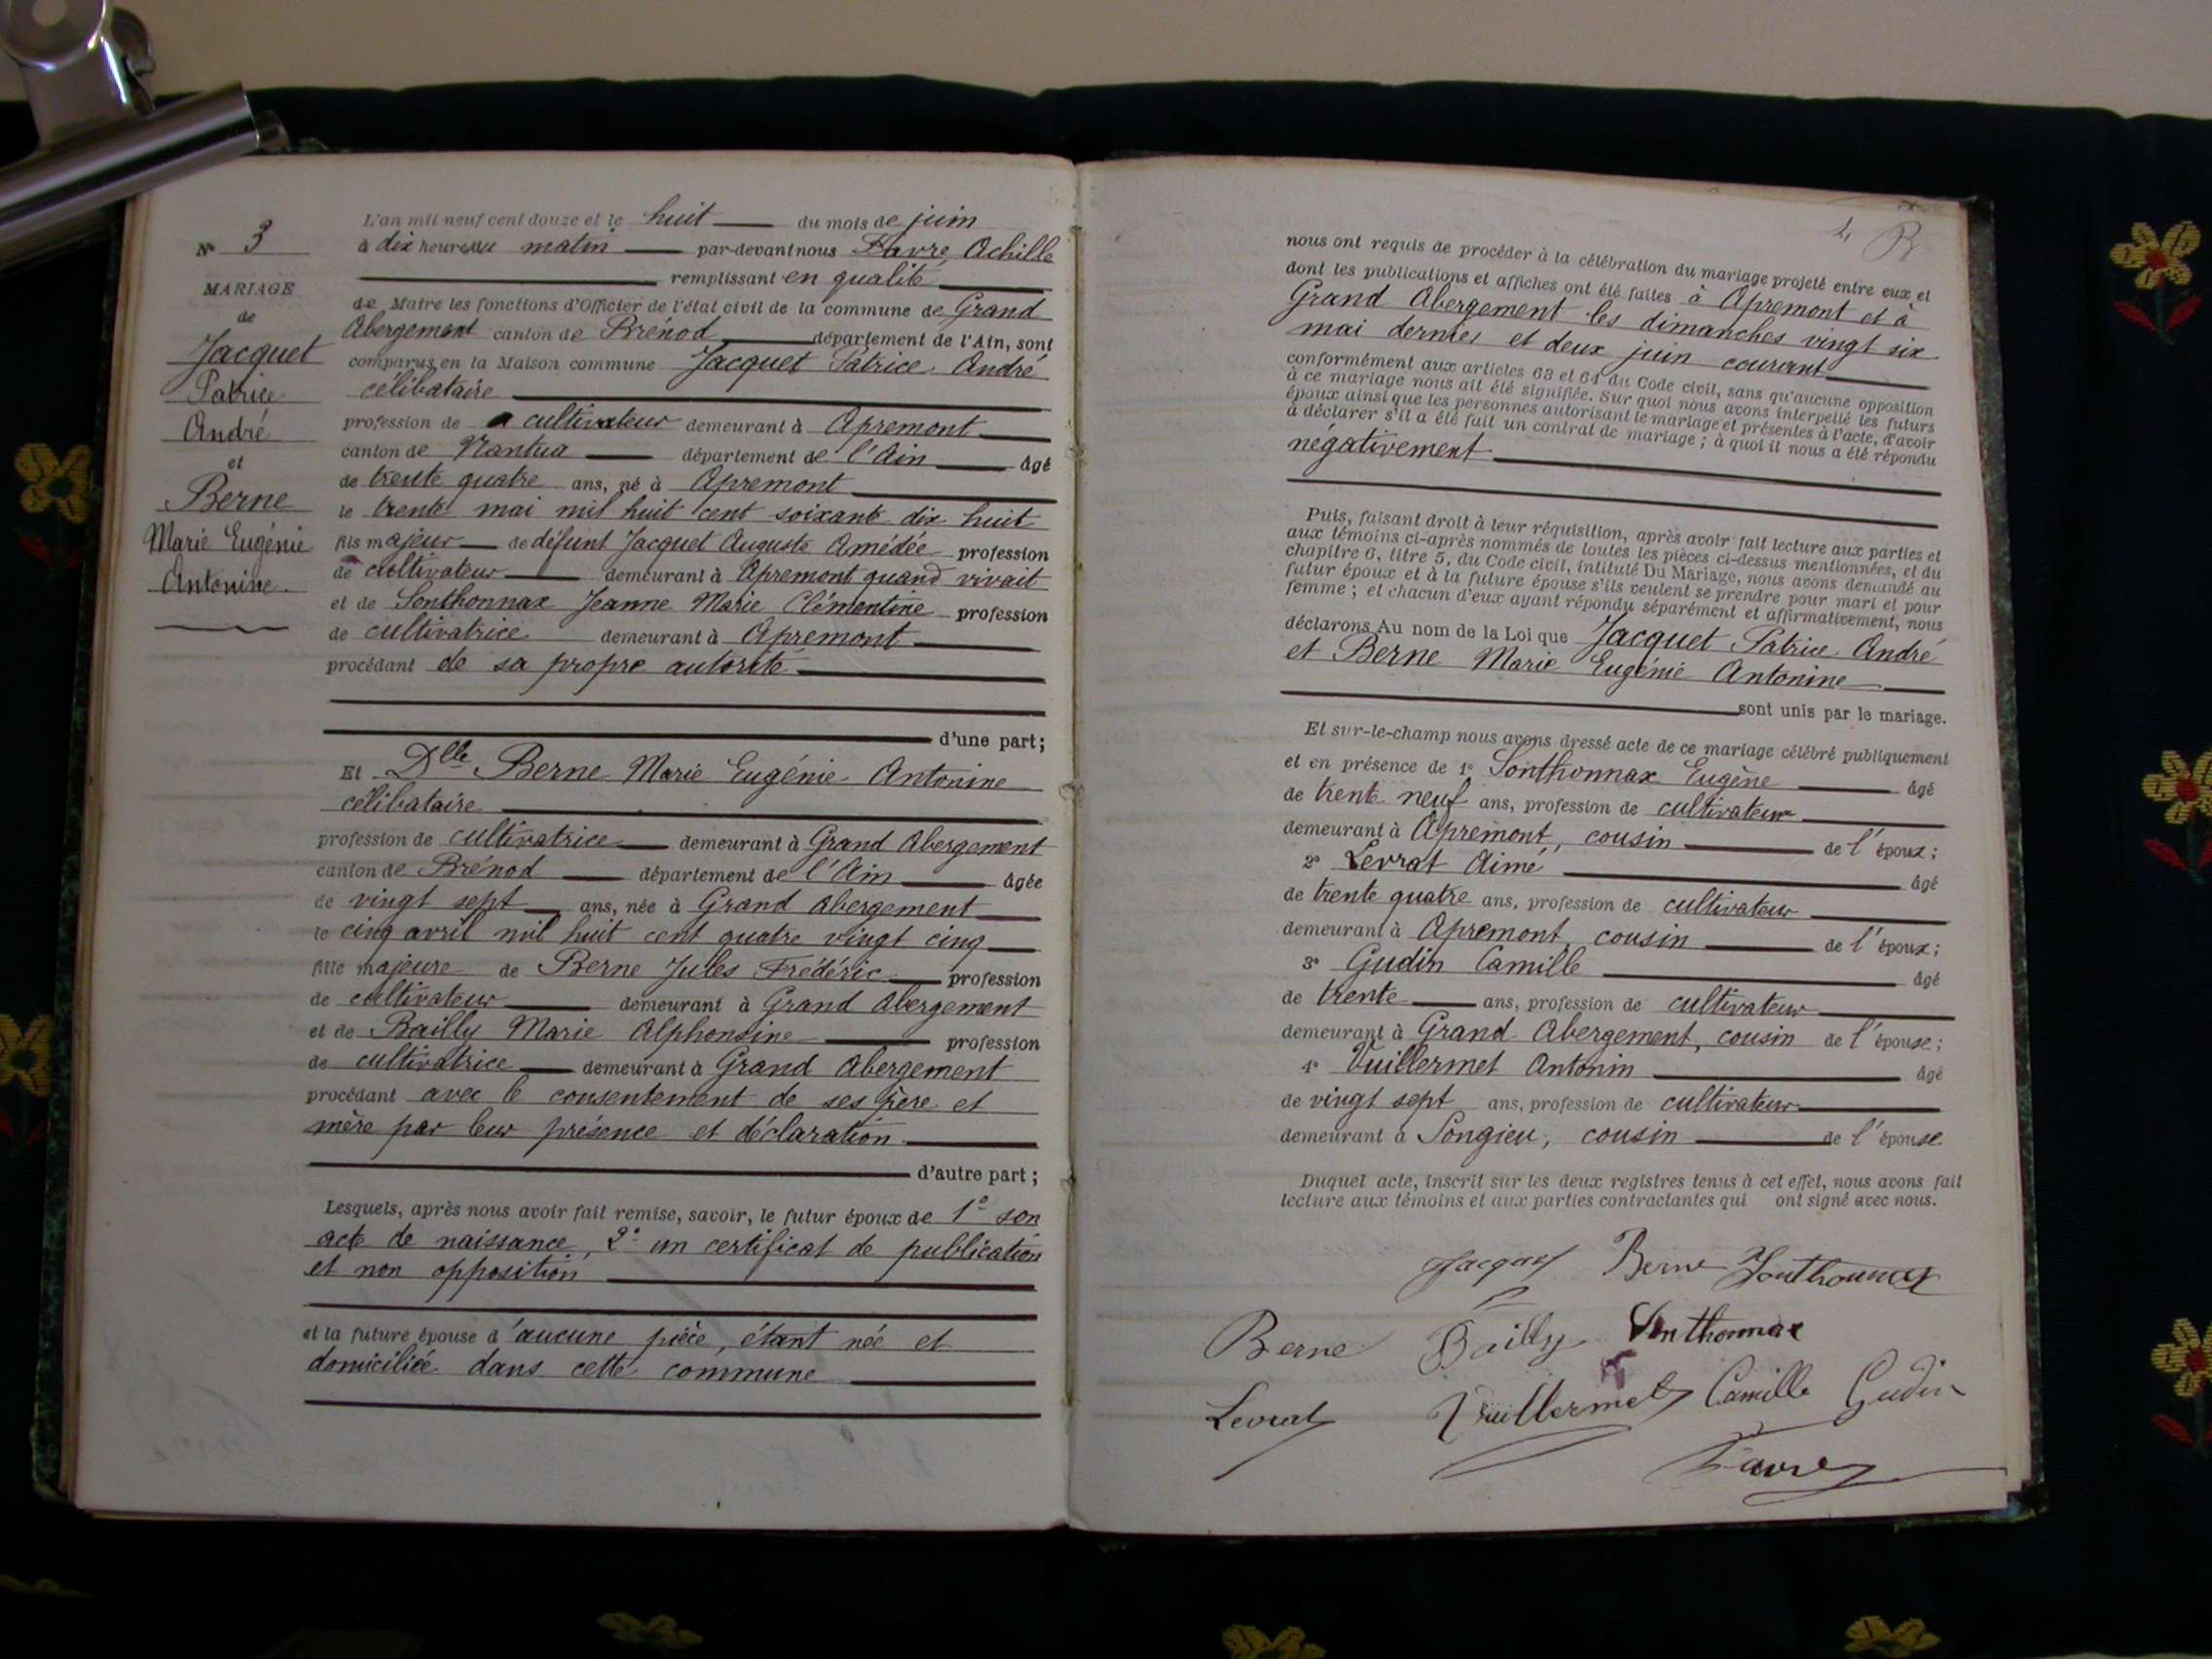 N° 3
MARIAGE
de
Jacquet
Patrice
André
et
Berne
Marie Eugénie
Antonine.
L'an mil neuf cent douze et le huit du mois de juin
à dix heures du matin par-devant nous Favre Achille
remplissant en qualité
de Maire les fonctions d'Officier de l'état civil de la commune de Grand
Abergement canton de Brénod département de l'Ain, sont
comparus en la Maison commune Jacquet Patrice André
célibataire
profession de cultivateur demeurant à Apremont
canton de Nantua département de l'Ain âgé
de trente quatre ans, né à Apremont
le trente mai mil huit cent soixante dix huit
fils majeur de défunt Jacquet Auguste Amédée profession
de cultivateur demeurant à Apremont quand vivait
et de Sonthonnax Jeanne Marie Clémentine profession
de cultivatrice demeurant à Apremont
procédant de sa propre autorité
d'une part;
Et Dlle Berne Marie Eugénie Antonine
célibataire
profession de cultivatrice demeurant à Grand Abergement
canton de Brénod département de l'Ain âgée
de vingt sept ans, née à Grand Abergement
le cinq avril mil huit cent quatre vingt cinq
fille majeure de Berne Jules Frédéric profession
de cultivateur demeurant à Grand Abergement
et de Bailly Marie Alphonsine profession
de cultivatrice demeurant à Grand Abergement
procédant avec le consentement de ses père et
mère par leur présence et déclaration.
d'autre part;
Lesquels, après nous avoir fait remise, savoir, le futur époux de 1° son
acte de naissance, 2° un certificat de publication
et non opposition
et la future épouse d'aucune pièce, étant née et
domiciliée dans cette commune
4 B
nous ont requis de procéder à la célébration du mariage projeté entre eux et
dont les publications et affiches ont été faites à Apremont et à
Grand Abergement les dimanches vingt six
mai dernier et deux juin courant
conformément aux articles 63 et 64 du Code civil, sans qu'aucune opposition
à ce mariage nous ait été signifiée. Sur quoi nous avons interpellé les futurs
époux ainsi que les personnes autorisant le mariage et présentes à l'acte, d'avoir
à déclarer s'il a été fait un contrat de mariage; à quoi il nous a été répondu
négativement
Puis, faisant droit à leur réquisition, après avoir fait lecture aux parties et
aux témoins ci-après nommés de toutes les pièces ci-dessus mentionnées, et du
chapitre 6, titre 5, du Code civil, intitulé Du Mariage, nous avons demandé au
futur époux et à la future épouse s'ils veulent se prendre pour mari et pour
femme; et chacun d'eux ayant répondu séparément et affirmativement, nous
déclarons Au nom de la Loi que Jacquet Patrice André
et Berne Marie Eugénie Antonine
sont unis par le mariage.
Et sur-le-champ nous avons dressé acte de ce mariage célébré publiquement
et en présence de 1° Sonthonnax Eugène âgé
de trente neuf ans, profession de cultivateur
demeurant à Apremont, cousin de l'époux;
2° Levrat Aimé âgé
de trente quatre ans, profession de cultivateur
demeurant à Apremont, cousin de l'époux;
3° Gudin Camille âgé
de trente ans, profession de cultivateur
demeurant à Grand Abergement, cousin de l'épouse;
4° Vuillermet Antonin âgé
de vingt sept ans, profession de cultivateur
demeurant à Songieu, cousin de l'épouse.
Duquel acte, inscrit sur les deux registres tenus à cet effet, nous avons fait
lecture aux témoins et aux parties contractantes qui ont signé avec nous.
Jacquet Berne Sonthonnax
Berne Bailly Sonthonnax
Levrat Vuillermet Camille Gudin
Favre